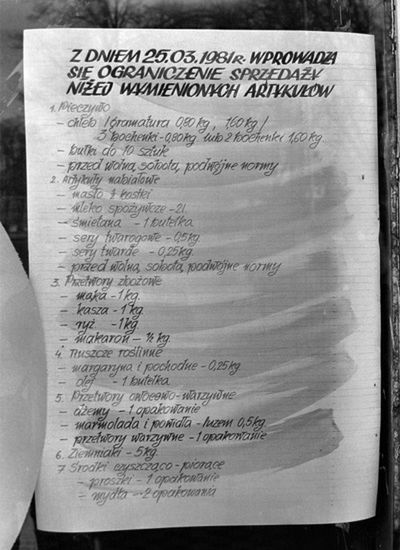 Z DNIEM 25.03.1981r. WPROWADZA
SIĘ OGRANICZENIE SPRZEDAŻY
NIŻEJ WYMIENIONYCH ARTYKUŁÓW
1. Pieczywo
– chleb /gramatura 0,80 kg, 1,60 kg/
3 bochenki-0,80 kg lub 2 bochenki 1,60 kg
– bułki do 10 sztuk
– przed wolną sobotą, podwójne normy
2. Artykuły nabiałowe
– masło kostki
– mleko spożywcze – 2l.
– śmietana – 1 butelka
– sery twarogowe – 0,5kg.
– sery twarde – 0,25kg.
– przed wolną sobotą, podwójne normy
3. Przetwory zbożowe
– mąka – 1 kg.
– kasza – 1 kg.
– ryż – 1 kg.
– makaron – ½ kg.
4. Tłuszcze roślinne
– margaryna i pochodne – 0,25kg.
– olej – 1 butelka
5. Przetwory owocowo-warzywne
– dżemy – 1 opakowanie
– marmolada i powidła – luzem 0,5kg.
– przetwory warzywne – 1 opakowanie
6. Ziemniaki – 5kg.
7 Środki czyszcząco-piorące
– proszki – 1 opakowanie
– mydła – 2 opakowania